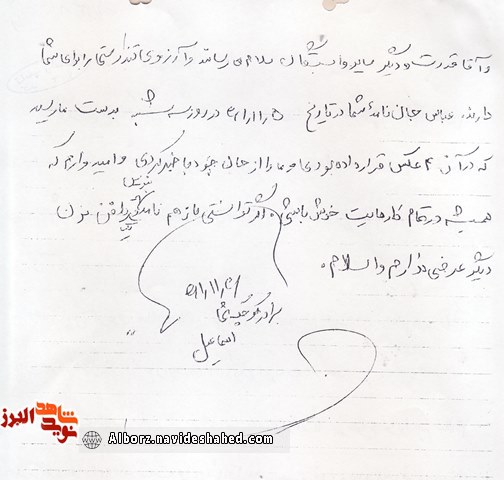 و آقا قدرت و دیگر سایر وابستگان سلام می‌رساند و آرزوی تندرستی شما را برای شما
دارند. عباس جان نامهٔ شما در تاریخ در روز سه شنبه بدست ما رسید
که در آن ۴ عکس قرار داده بودی و ما را از حال خود با خبر کردی و امیدوارم که
همیشه در تمام کارهایت خوش باشی. اگر توانستی باز هم نامه
دیگر عرضی ندارم والسلام.
برادر کوچک شما
اسماعیل
نوید شاهد البرز
Alborz.navideshahed.com